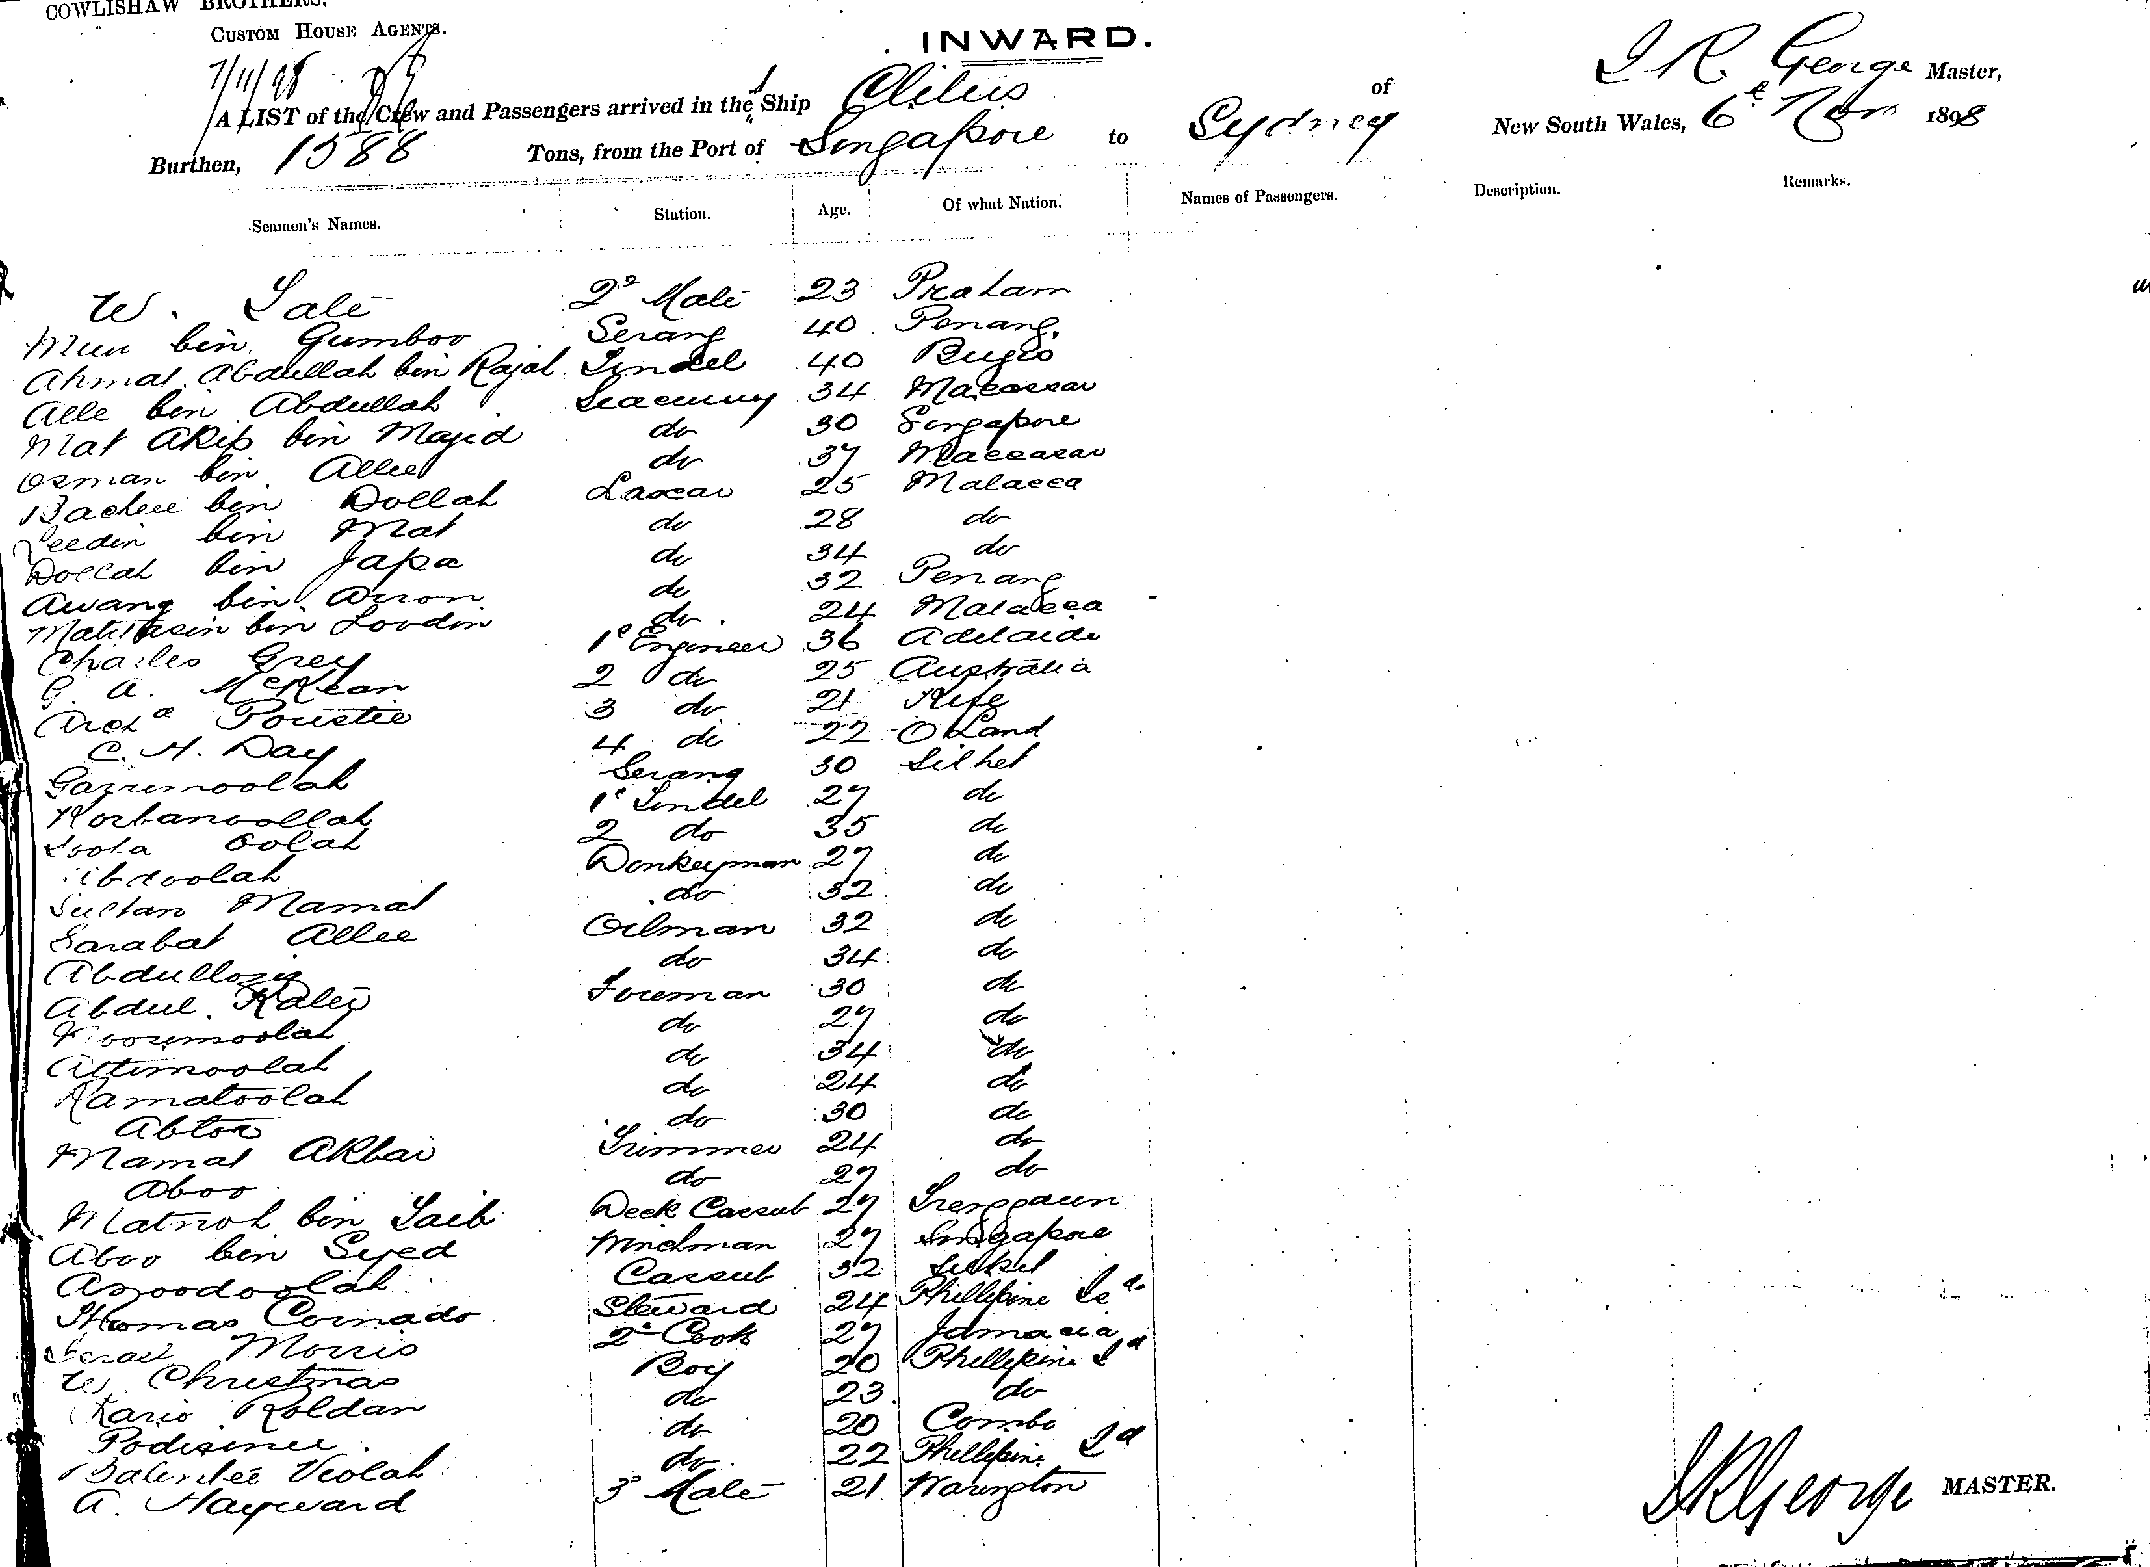 COWLISHAW BROTHERS.
CUSTOM HOUSE AGENTS.
INWARD.
7/11/98
A LIST of the Crew and Passengers arrived in the Ship Clitus of I R. George Master,
Burthen, 1588 Tons, from the Port of Singapore to Sydney New South Wales, 6th Nov 1898
Seamen's Names. Station. Age. Of what Nation. Names of Passengers. Description. Remarks.
W. Tate 2d Mate 23 Prahan
bin Gumboo Serang 40 Penang
Ahmat Abdullah bin Rajat Tindel 40 Bugis
Alle bin Abdullah Seacunny 34 Macassar
Mat Akib bin Majid do 30 Singapore
Osman bin Allee do 37 Maccasar
Bachee bin Dollah Lascar 25 Malacca
bin Mat do 28 do
Dollah bin Japa do 34 do
Awang bin Arron do 32 Penang
bin Loodin do 24 Malacca
Charles Grey 1e Engineer 36 Adelaide
G. A. McKean 2 do 25 Australia
Archd Poustie 3 do 21 Fife
C. H. Day 4 do 22 Land
Gazzimoolah Serang 30 Silhet
Korbanoollah 1e Tindel 27 do
Oolah 2 do 35 do
Donkeyman 27 do
Sultan Mamat do 32 do
Sarabat Allee Oilman 32 do
do 34 do
Abdul Kalee Foreman 30 do
do 27 do
Attimoolah do 34 do
Ramatoolah do 24 do
Abtor do 30 do
Mamat Akbar Trimmer 24 do
Aboo do 27 do
Matnoh bin Taib Deck Cassub 27
Aboo bin Syed 27 Singapore
Azoodoolah Cassub 32 Silhet
Thomas Coinado Steward 24 Phillipine Isds
Morris 2d Cook 27 Jamaica
W. Christmas Boy 20 Phillipine Id
Roldan do 23 do
do 20 Combo
Violah do 22 Phillipine Id
A. Hayward 3d Mate 21 Warington
I R George MASTER.